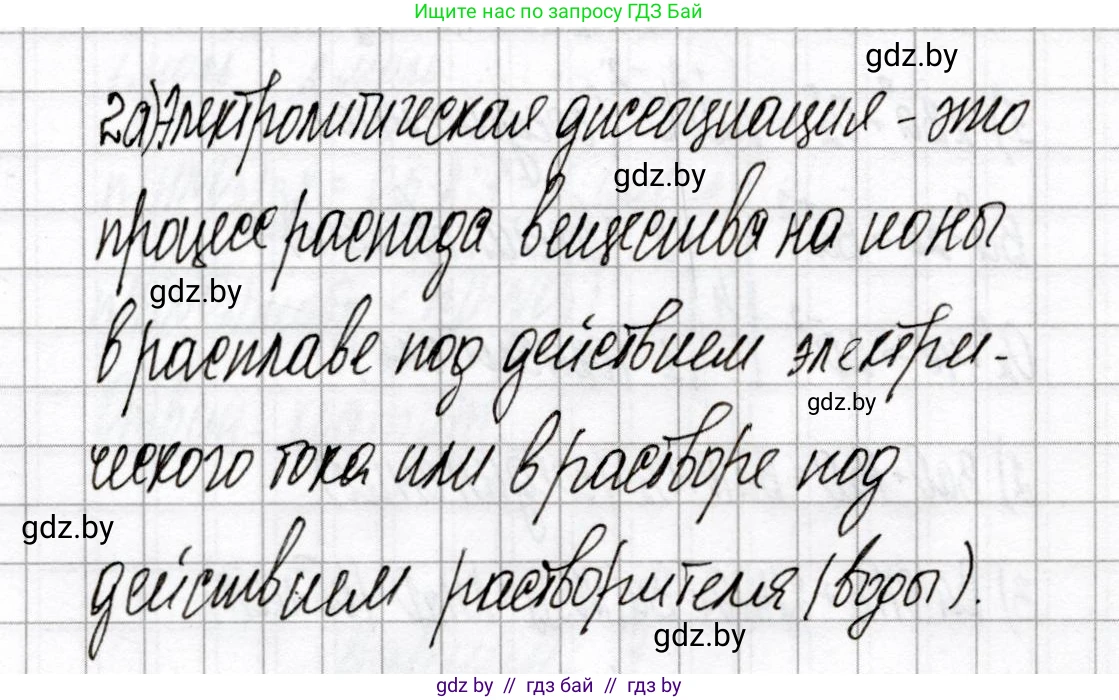 Ищите нас по запросу ГДЗ Бай
gdz.by
2а) Электролитическая диссоциация - это
gdz.by
процесс распада вещества на ионы
gdz.by
в расплаве под действием электри-
gdz.by
ческого тока или в растворе под
gdz.by
действием растворителя (воды).
gdz.by
gdz by // гдз бай // gdz by